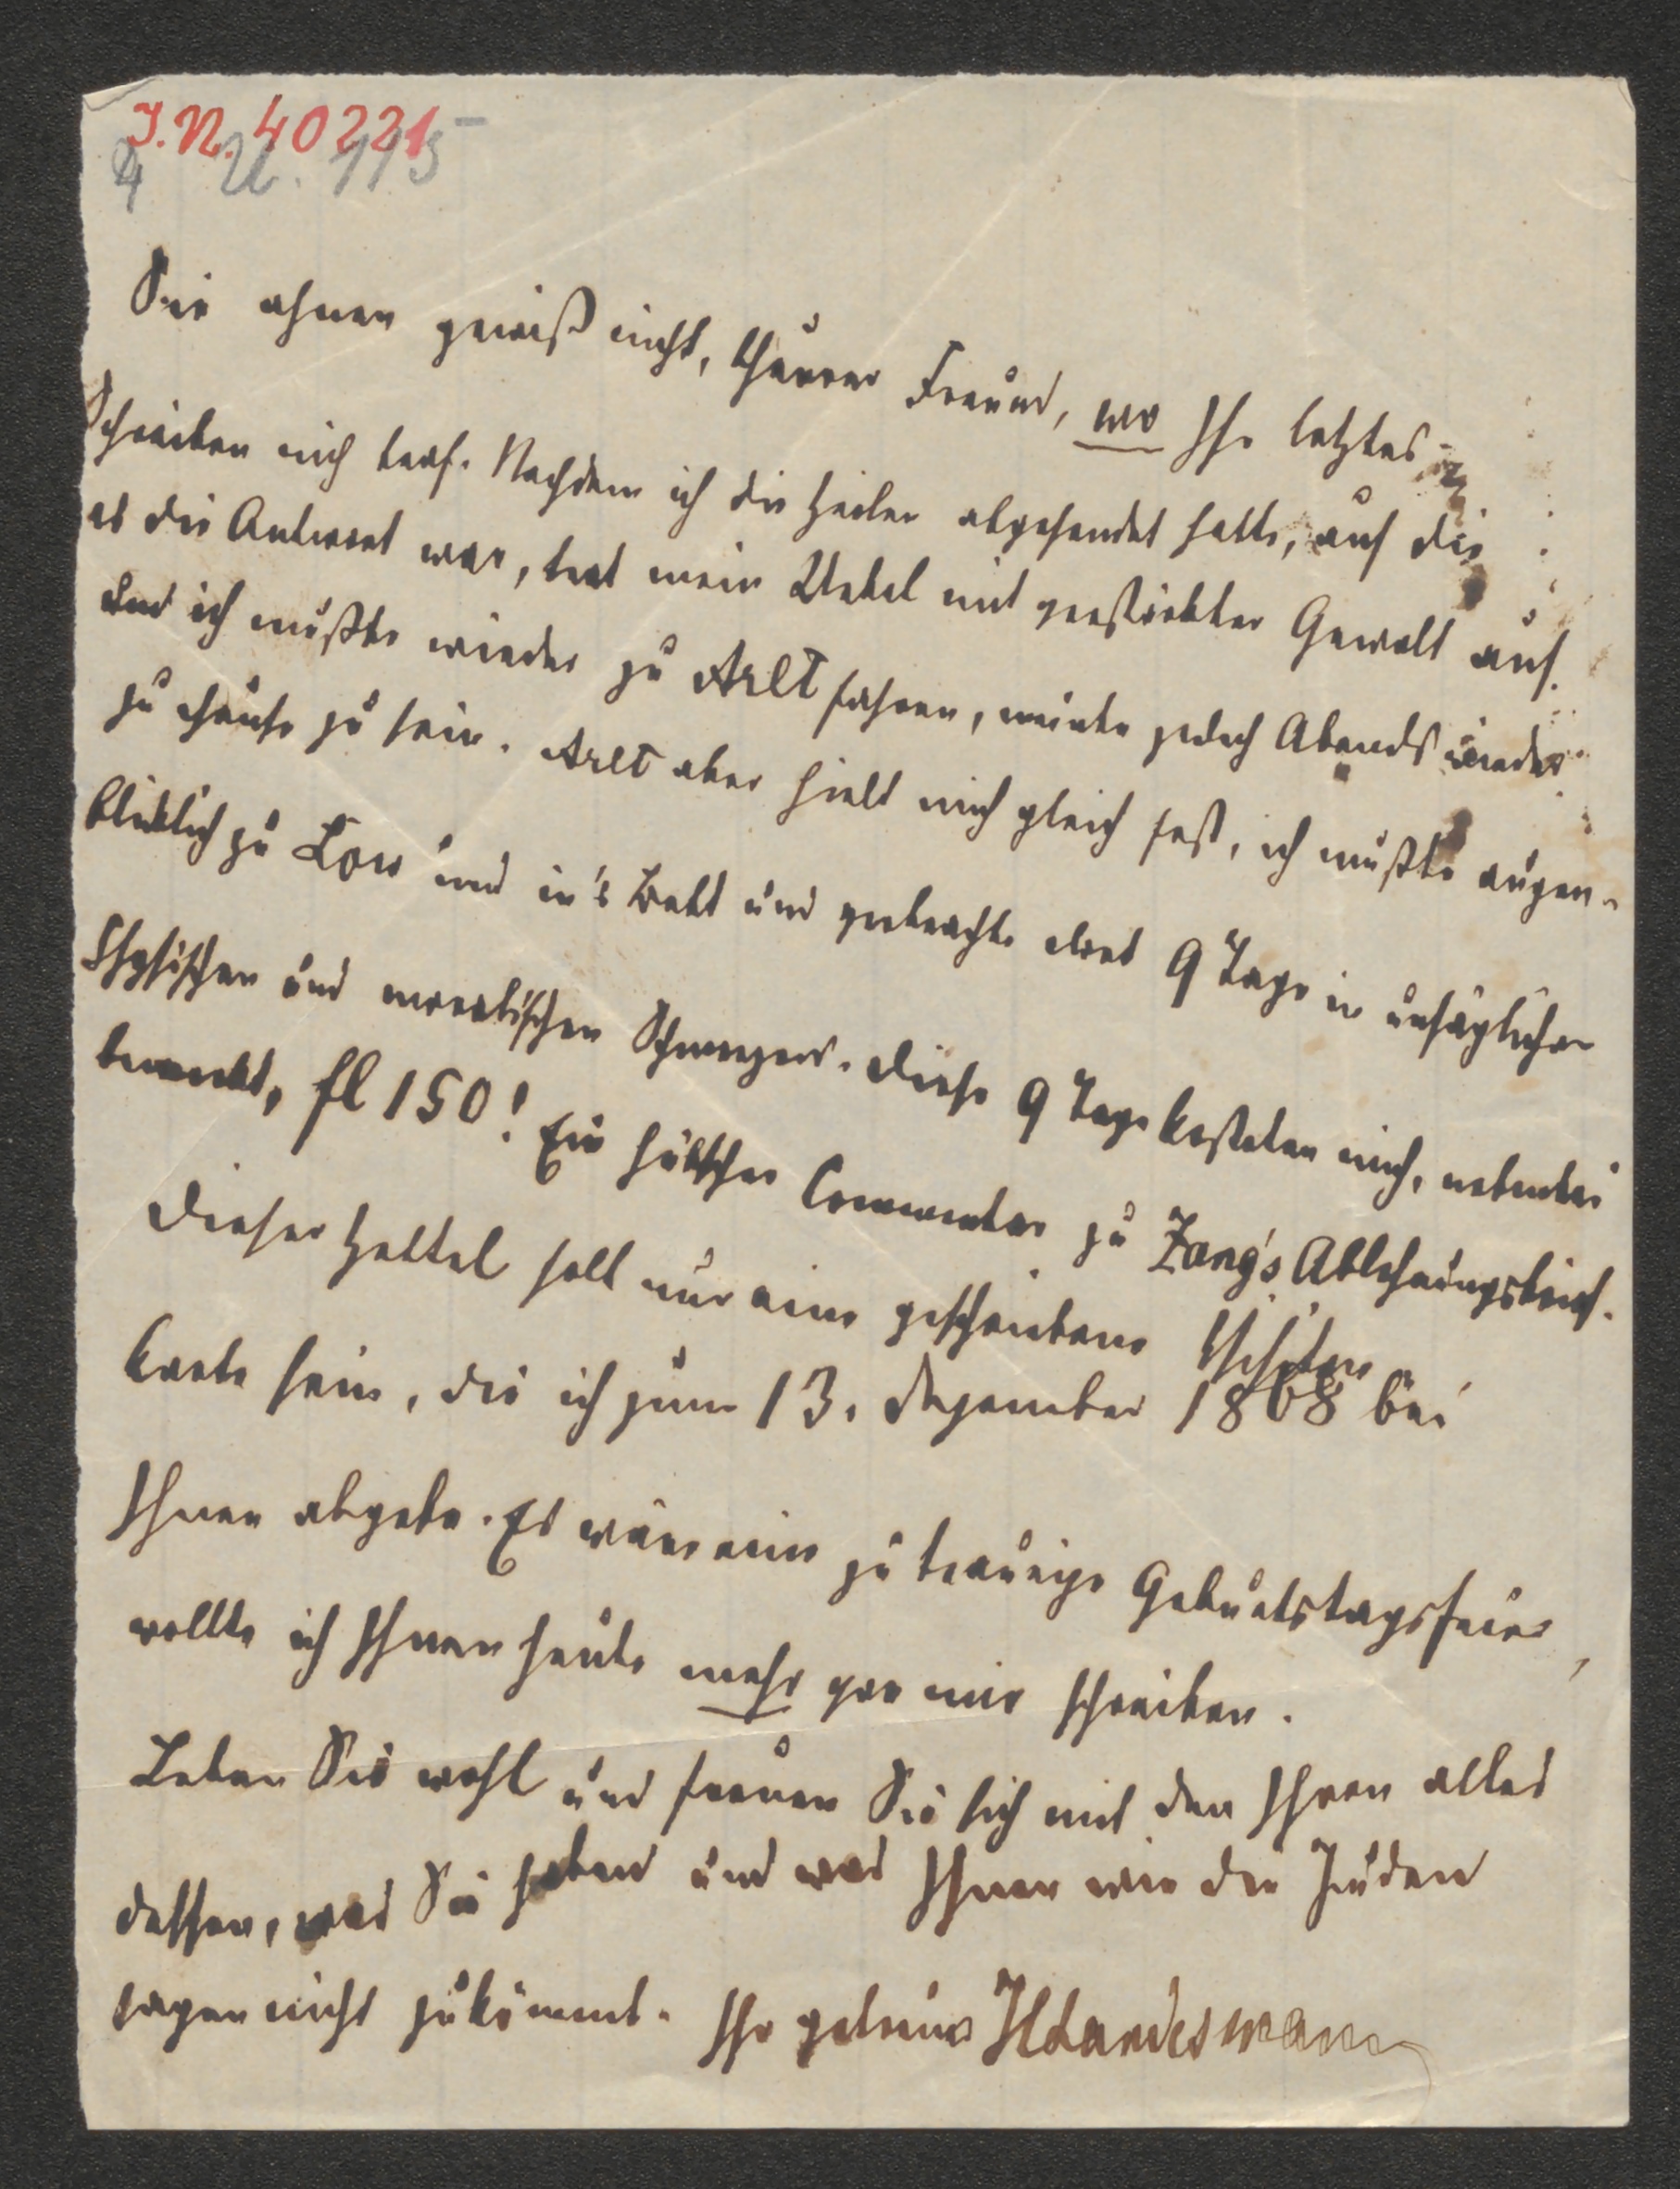 J.N. 40221
4 U. 115
Sie ahnen gewiß nicht, theurer Freund, wo Ihr letztes
Schreiben mich traf. Nachdem ich die Zeilen abgesendet hatte, auf die
es die Antwort war, trat mein Uebel mit verstärkter Gewalt auf
und ich mußte wieder zu Arlt fahren, meinte jedoch Abends wieder
zu Hause zu sein. Arlt aber hielt mich gleich fest, ich mußte augen-
blicklich zu Löw und in's Bett und verbrachte dort 9 Tage in unsäglichen
physischen und moralischen Schmerzen. Diese 9 Tage kosteten mich, nebenbei
bemerkt, fl 150! Ein hübscher Commentar zu Zang's Ablehnungsbrief.
Dieser Zettel soll nur eine geschriebene Visiten
karte sein, die ich zum 13. Dezember 1868 bei
Ihnen abgebe. Es wäre eine zu traurige Geburtstagsfeier,
wollte ich Ihnen heute mehr von mir schreiben.
Leben Sie wohl und freuen Sie sich mit den Ihren alles
dessen, was Sie haben und was Ihnen wie die Juden
sagen nicht zukömmt. Ihr getreuer HLandesmann